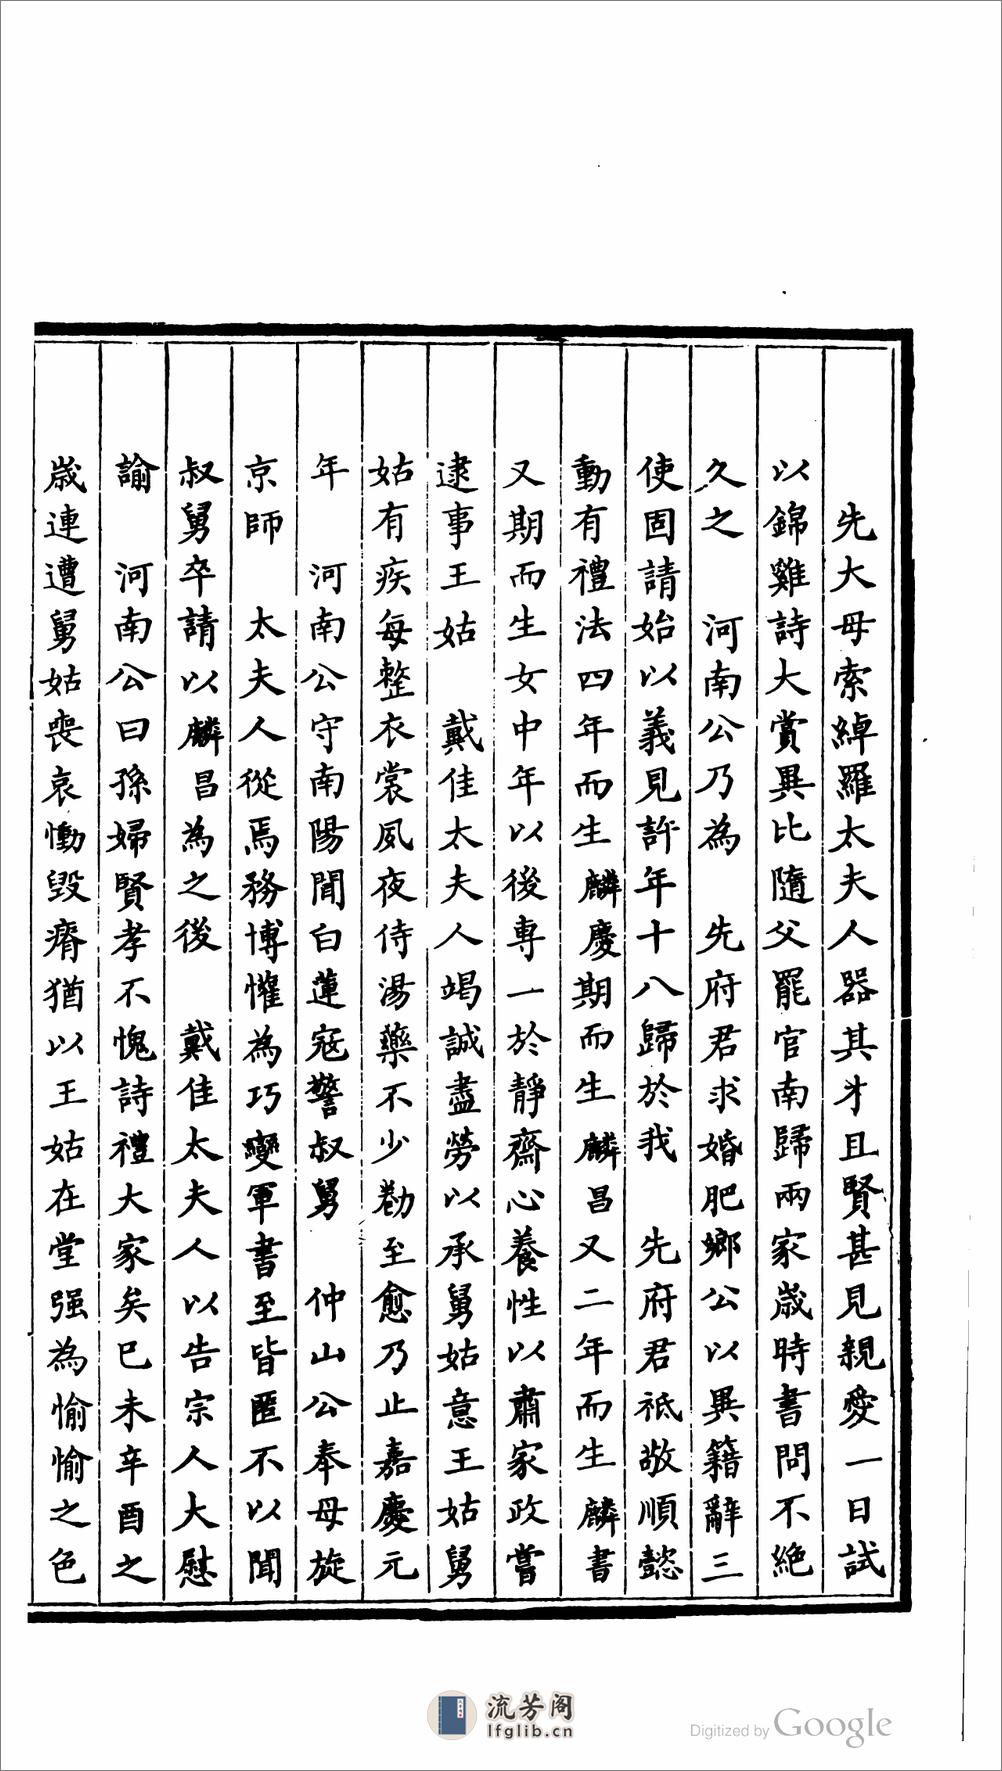 先大母索綽羅太夫人器其才且賢甚見親愛一日試
以錦雞詩大賞異比隨父罷官南歸兩家歲時書問不絕
久之　河南公乃為　先府君求婚肥鄉公以異籍辭三
使固請始以義見許年十八歸於我　先府君祗敬順懿
動有禮法四年而生麟慶期而生麟昌又二年而生麟書
又期而生女中年以後專一於靜齋心養性以肅家政嘗
逮事王姑　戴佳太夫人竭誠盡勞以承舅姑意王姑舅
姑有疾每整衣裳夙夜侍湯藥不少勌至愈乃止嘉慶元
年　河南公守南陽聞白蓮寇警叔舅　仲山公奉母旋
京師　太夫人從焉務博懽為巧變軍書至皆匿不以聞
叔舅卒請以麟昌為之後　戴佳太夫人以告宗人大慰
諭　河南公曰孫婦賢孝不愧詩禮大家矣已未辛酉之
歲連遭舅姑喪哀慟毀瘠猶以王姑在堂强為愉愉之色
流芳阁
lfglib.cn
Digitized by Google